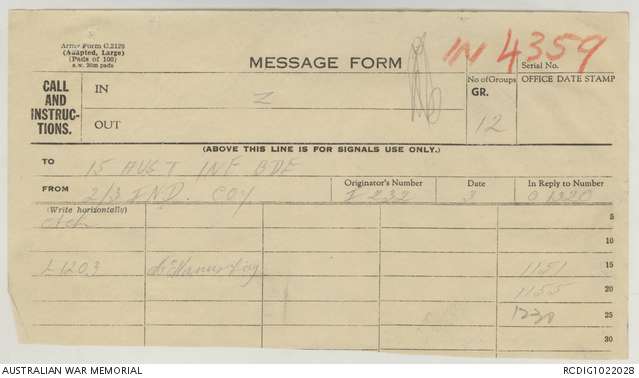 Army Form C.2128
(Adapted, Large)
(Pads of 100)
MESSAGE FORM
IN 4359
Serial No.
CALL AND INSTRUC-TIONS.
IN
Z
No of Groups
GR.
12
OFFICE DATE STAMP
OUT
(ABOVE THIS LINE IS FOR SIGNALS USE ONLY.)
TO 15 AUST INF BDE
FROM 2/3 IND. COY
Originator's Number
I 232
Date
3
In Reply to Number
O 1320
(Write horizontally)
5
10
L 1203
1151
15
1155
20
1230
25
30
AUSTRALIAN WAR MEMORIAL
RCDIG1022028